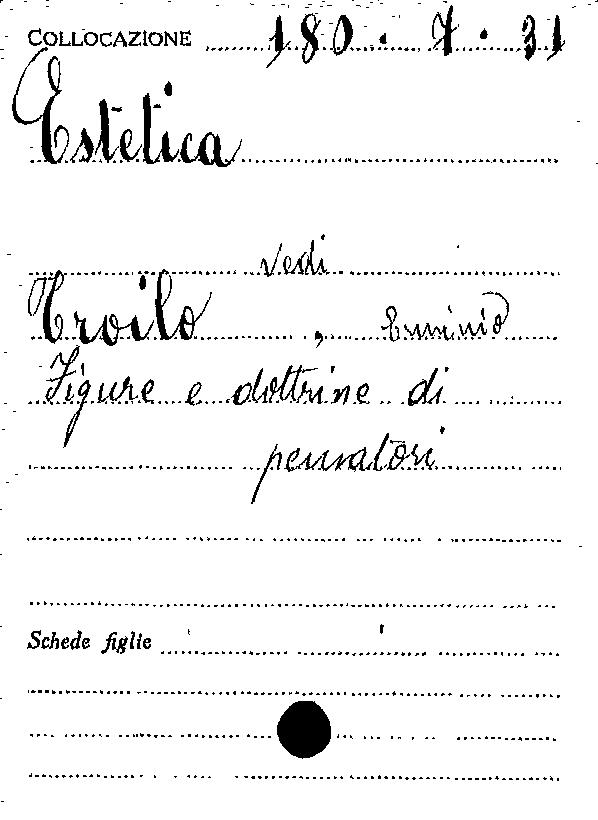 COLLOCAZIONE 180 . 7 . 31
Estetica
vedi
Troilo , Erminio
Figure e dottrine di
pensatori
Schede figlie